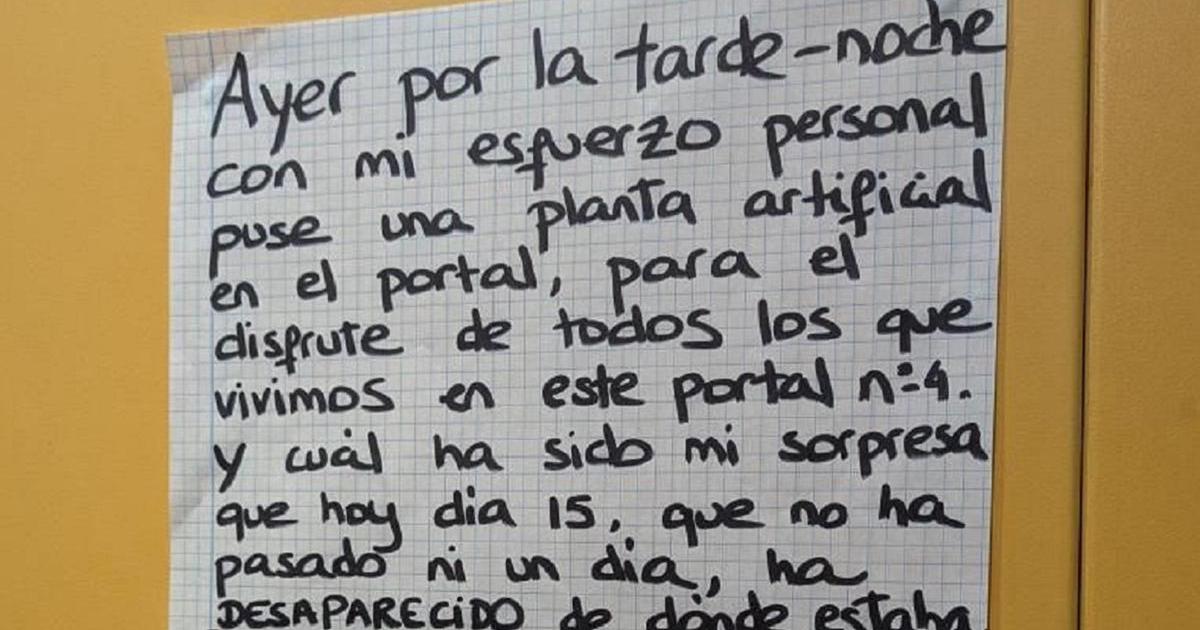 Ayer por la tarde-noche
con mi esfuerzo personal
puse una planta artificial
en el portal, para el
disfrute de todos los que
vivimos en este portal nº4.
Y cuál ha sido mi sorpresa
que hoy dia 15, que no ha
pasado ni un dia, ha
DESAPARECIDO de dónde estaba